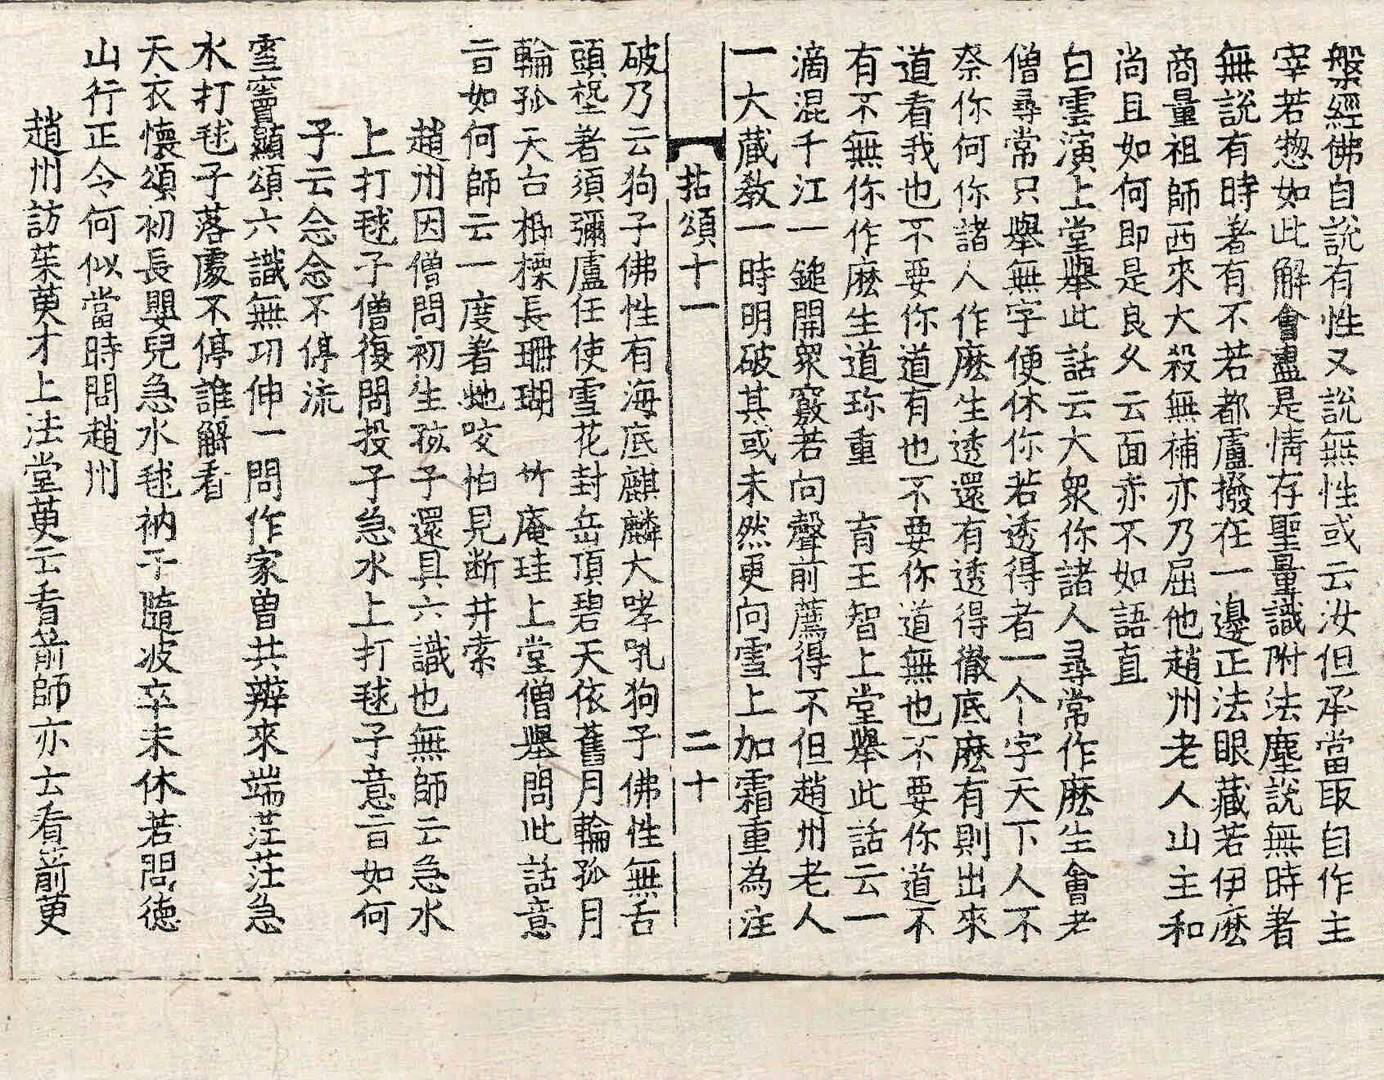 槃經佛自說有性又說無性或云汝但承當取自作主
宰若惣如此解會盡是情存聖量識附法塵說無時者
無說有時者有不若都盧撥在一邊正法眼藏若伊麽
商量祖師西來大殺無補亦乃屈他趙州老人山主和
尚且如何即是良久云面赤不如語直
白雲演上堂舉此話云大眾你諸人尋常作麽生會老
僧尋常只舉無字便休你若透得者一个字天下人不
柰你何你諸人作麽生透還有透得徹底麽有則出來
道看我也不要你道有也不要你道無也不要你道不
有不無你作麽生道珎重　育王智上堂舉此話云一
滴混千江一鎚開眾竅若向聲前薦得不但趙州老人
一大藏敎一時明破其或未然更向雪上加霜重為注
拈頌十一　二十
破乃云狗子佛性有海底麒麟大哮吼狗子佛性無舌
頭埿著須彌盧任使雪花封岳頂碧天依舊月輪孤月
輪孤天台楖㮚長珊瑚　竹庵珪上堂僧舉問此話意
旨如何師云一度著虵咬怕見断井索
趙州因僧問初生孩子還具六識也無師云急水
上打毬子僧復問投子急水上打毬子意旨如何
子云念念不停流
雪竇顯頌六識無功伸一問作家曾共辨來端茫茫急
水打毬子落處不停誰解看
天衣懷頌初長嬰兒急水毬衲子隨波卒未休若問德
山行正令何似當時問趙州
趙州訪茱萸才上法堂萸云看箭師亦云看箭萸